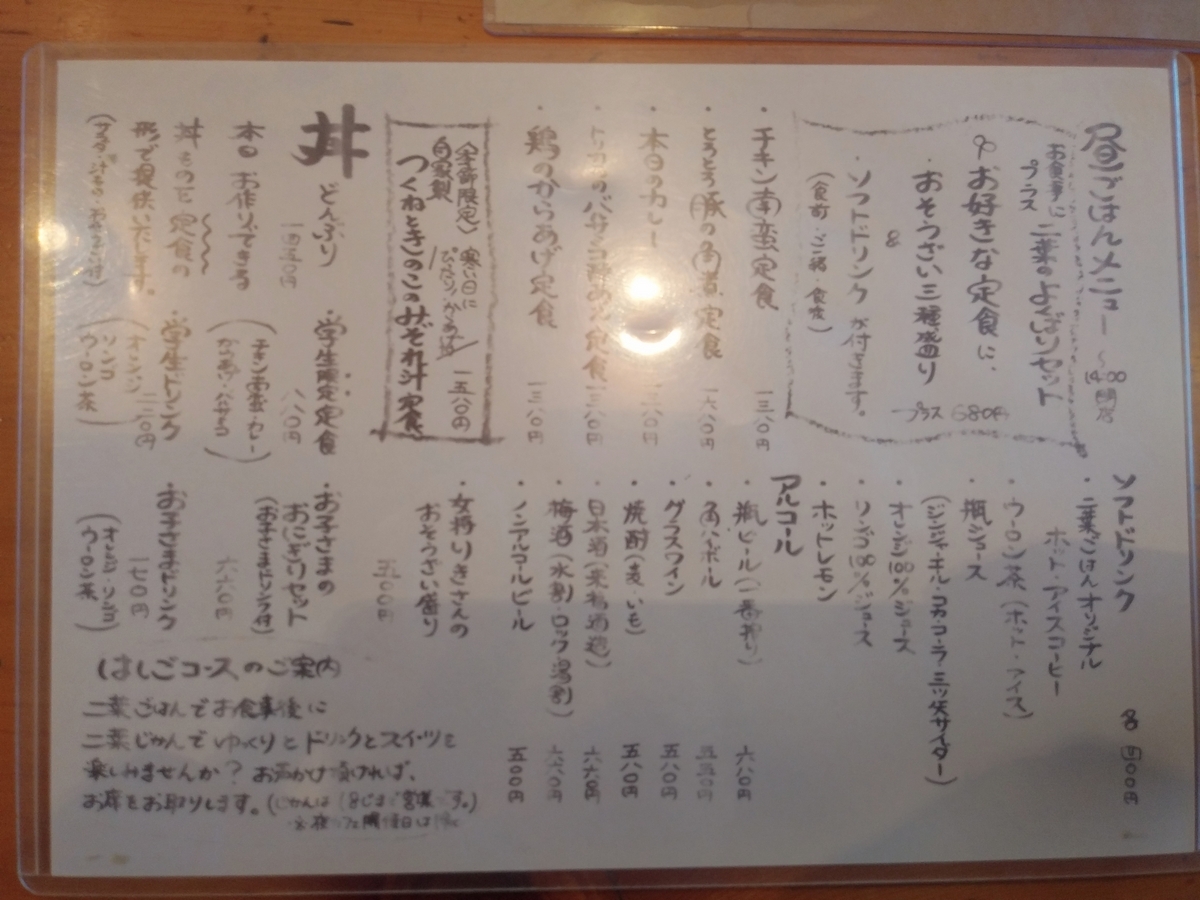 昼ごはんメニュー
〜14:00 閉店
お食事に
プラス
二葉のよくばりセット
お好きな定食に、
おそうざい三種盛り
プラス 680円
&
・ソフトドリンク が付きます。
(食前・ご一緒・食後)
・チキン南蛮定食 一三八〇円
・とろとろ豚の角煮定食 一六八〇円
・本日のカレー 一三八〇円
定食 一三八〇円
・鶏のからあげ定食 一三八〇円
〈季節限定〉 寒い日に
ぴったり!
自家製
つくねときのこのみぞれ汁定食 一五八〇円
丼 どんぶり
本日お作りできる
丼ものを定食の
形で提供いたします。
・学生限定定食 八八〇円
(チキン南蛮・カレー
・学生ドリンク 二二〇円
(オレンジ
リンゴ
ウーロン茶)
ソフトドリンク 各 四〇〇円
・二葉ごはんオリジナル
ホット・アイスコーヒー
・ウーロン茶(ホット・アイス)
・瓶ジュース
(ジンジャーエール・コカ・コーラ・三ツ矢サイダー)
・オレンジ100%ジュース
・リンゴ100%ジュース
・ホットレモン
アルコール
・瓶ビール(一番搾り) 六八〇円
・角ハイボール 五五〇円
・グラスワイン 五八〇円
・焼酎(麦・いも) 五八〇円
・日本酒 六六〇円
・梅酒(水割・ロック・湯割)
・ノンアルコールビール 五〇〇円
・女将りきさんの
おそうざい盛り
五〇〇円
・お子さまの
おにぎりセット
(お子さまドリンク付)
六六〇円
・お子さまドリンク
一七〇円
(オレンジ・リンゴ
ウーロン茶)
はしごコースのご案内
二葉ごはんでお食事後に
二葉じかんでゆっくりとドリンクとスイーツを
楽しみませんか? お声かけ頂ければ、
お席をお取りします。(じかんは18じまで営業です。)